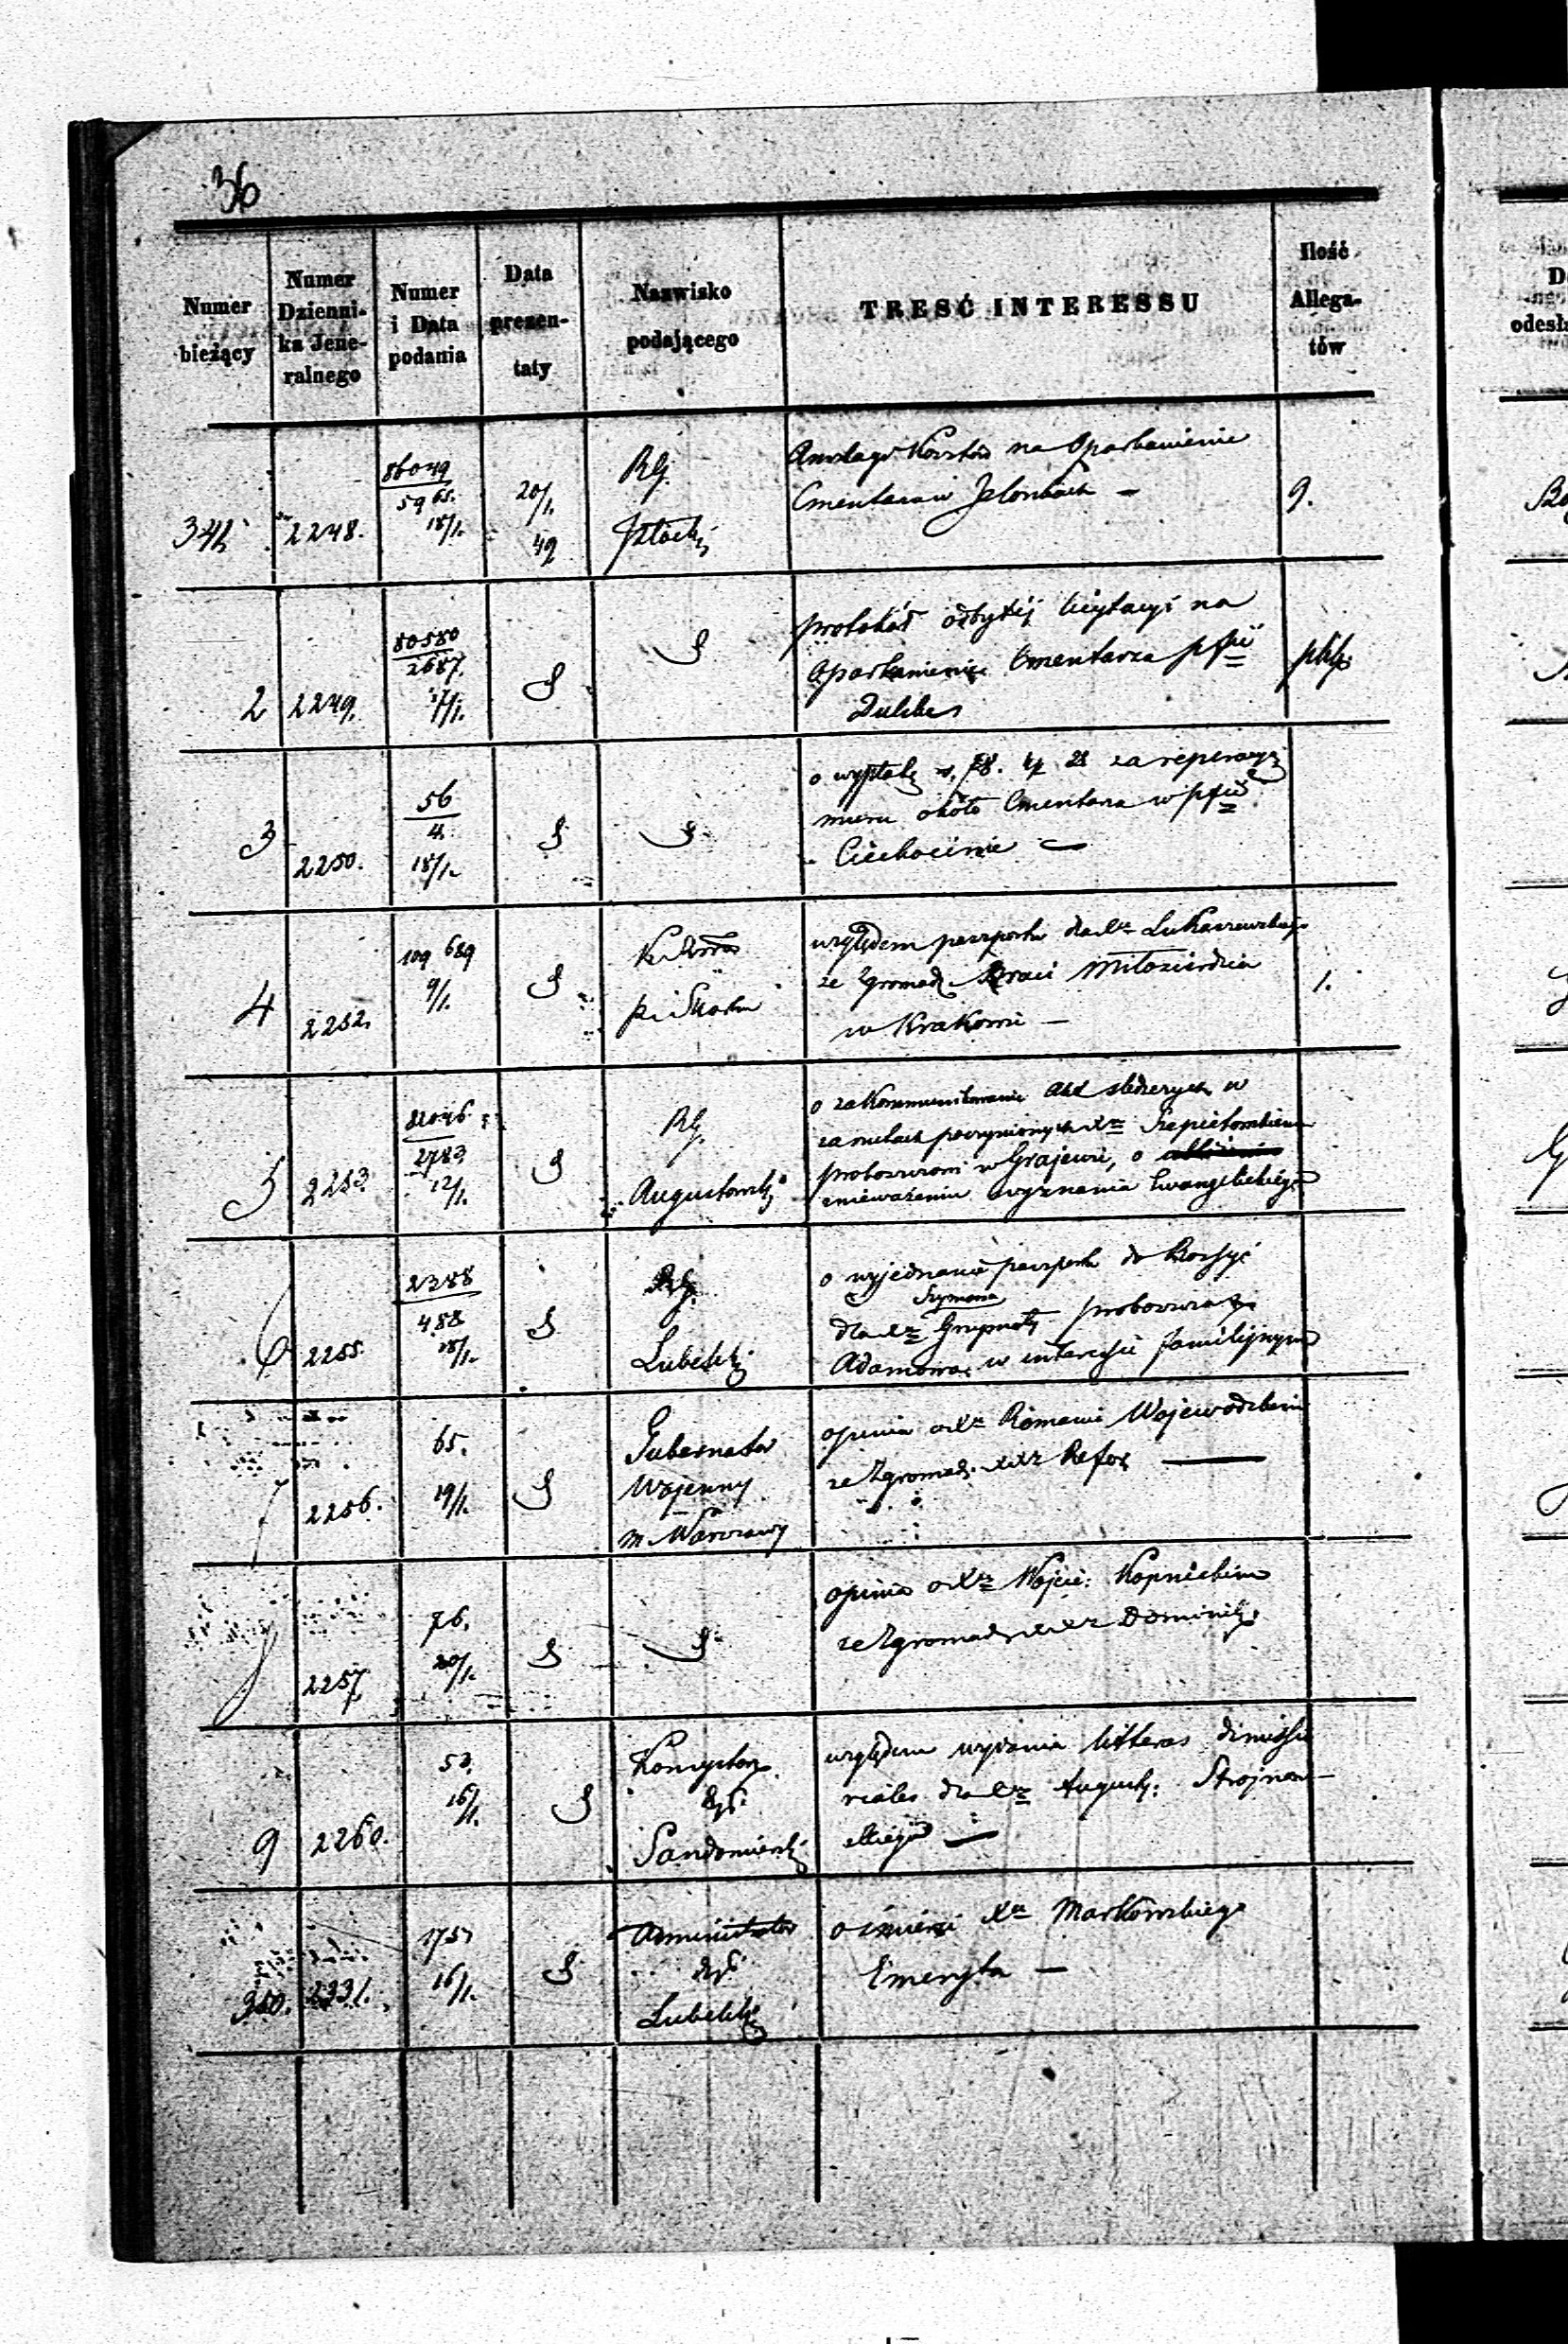 36
Numer bieżący
Numer Dzienni- ka Jene- ralnego
Numer i Data podania
Data prezen- taty
Nazwisko podającego
TREŚĆ INTERESSU
Ilość Allega- tów
341
2248.
86049
59 65.
18/1.
20/1.
49
RG.
Płocki
Anszlag Kosztów na Oparkanienie
Cmentarza w
9.
2
2249.
80580
2687.
17/1.
S
S
protokół odbytéj licytacyi na
Oparkanienie Cmentarza
3
2250.
56
4.
18/1.
S
S
o wypłatę za reperacyę
muru około Cmentarza w
Ciechocinie —
4
2252.
109 689
9/1.
S
względem paszportu dla Xa Łukaszewskiego
ze Zgromadz. Braci Miłosierdzia
w Krakowie —
1.
5
2253.
82046
2783
12/1.
S
RG.
Augustowski
o zakommunikowanie Akt śledczych w
proboszczowi w Grajewie, o
znieważeniu wyznania Ewangelickiego
6
2255.
2388
488
18/1.
S
RG.
Lubelski
o wyjednanie paszportu do Rossyi
Szymona
dla Xa proboszcza
Adamowa, w interesie familijnym
7
2256.
65.
19/1.
S
Gubernator
Wojenny
m. Warszawy
opinia o Xu Romanie Wojewódzkim
ze Zgromadz. XX Refor.
8
2257.
76.
20/1.
S
S
opinia o Xu Wojcie: Kopnickim
ze Zgromadz. XX Dominik.
9
2260.
53.
16/1.
S
Konsystorz
Dyec.
Sandomierski
względem wydania litteras dimisso
riales dla Xa August: Strojnow-
skiego —
350.
2331.
175
16/1.
S
Administrator
Dyec.
Lubelski
o śmierci Xa Markowskiego
Emeryta —